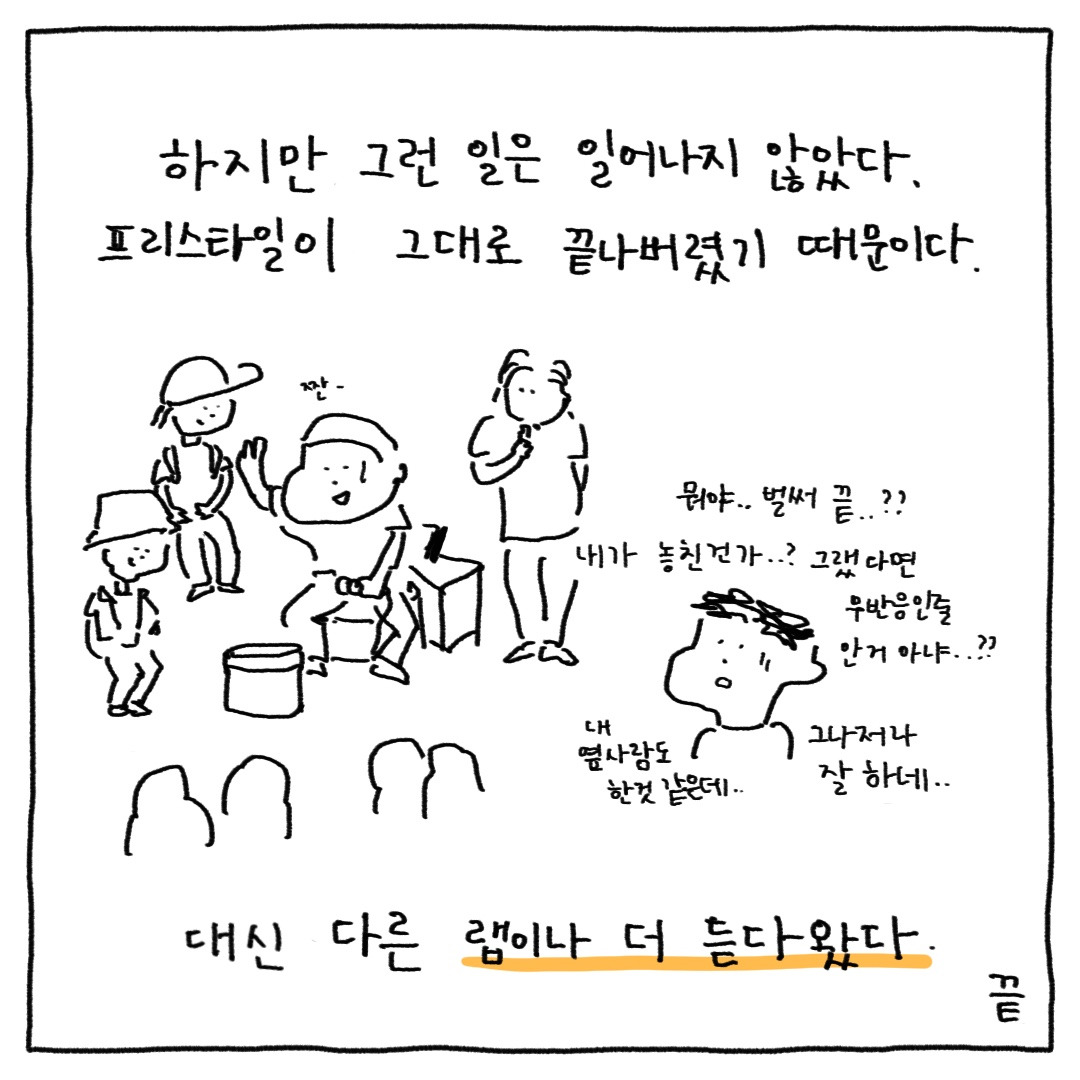 하지만 그런 일은 일어나지 않았다.
프리스타일이 그대로 끝나버렸기 때문이다.
짠-
뭐야.. 벌써 끝..??
내가 놓친건가..? 그랬다면
무반응인줄
안거 아냐..??
내
옆사람도
한것 같은데..
그나저나
잘 하네..
대신 다른 랩이나 더 듣다왔다.
끝